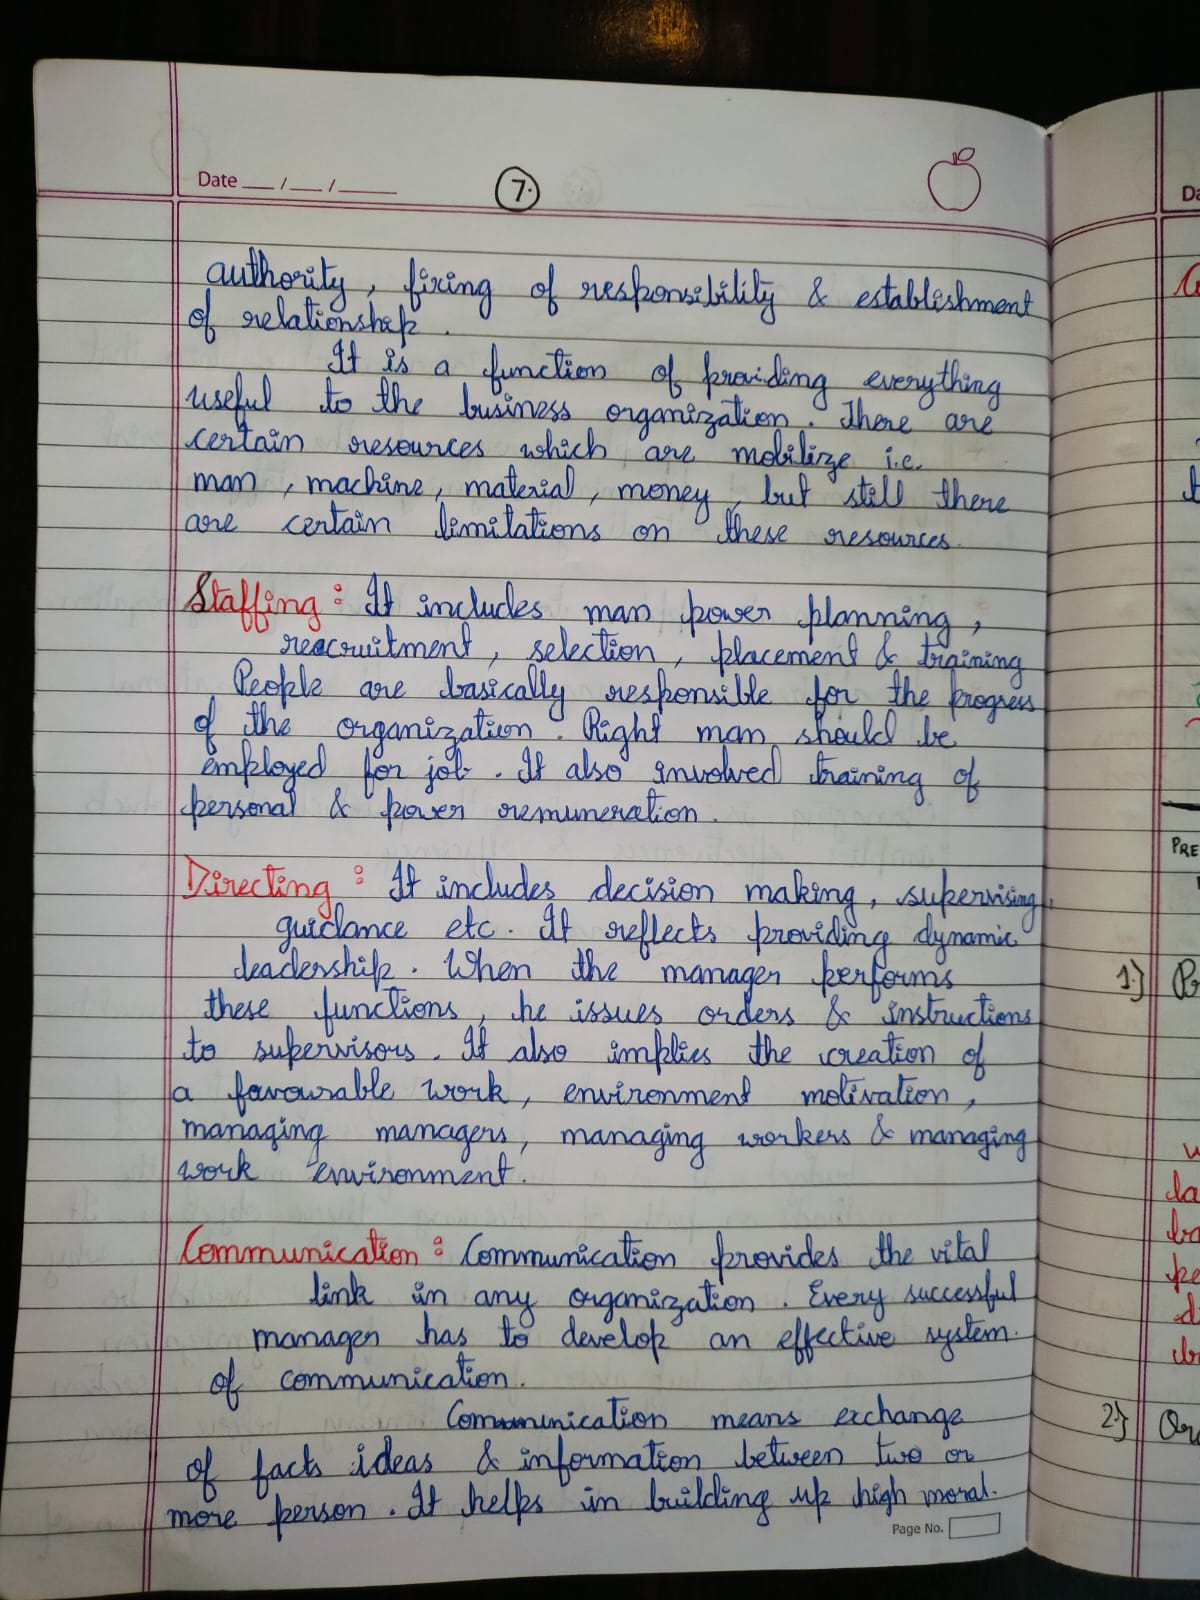 Date __/__/____
7.
authority, fixing of responsibility & establishment
of relationship.
It is a function of providing everything
useful to the business organization. There are
certain resources which are mobilize i.e.
man, machine, material, money, but still there
are certain limitations on these resources.
Staffing : It includes man power planning,
reacruitment, selection, placement & training
People are basically responsible for the progress
of the organization. Right man should be
employed for job. It also involved training of
personal & power remuneration.
Directing : It includes decision making, supervising,
guidance etc. It reflects providing dynamic
leadership. When the manager performs
these functions, he issues orders & instructions
to supervisors. It also implies the creation of
a favourable work, environment motivation,
managing managers, managing workers & managing
work environment.
Communication : Communication provides the vital
link in any organization. Every successful
manager has to develop an effective system.
of communication.
Communication means exchange
of facts ideas & information between two or
more person. It helps in building up high moral.
Page No.
PRE
1.)
2.)